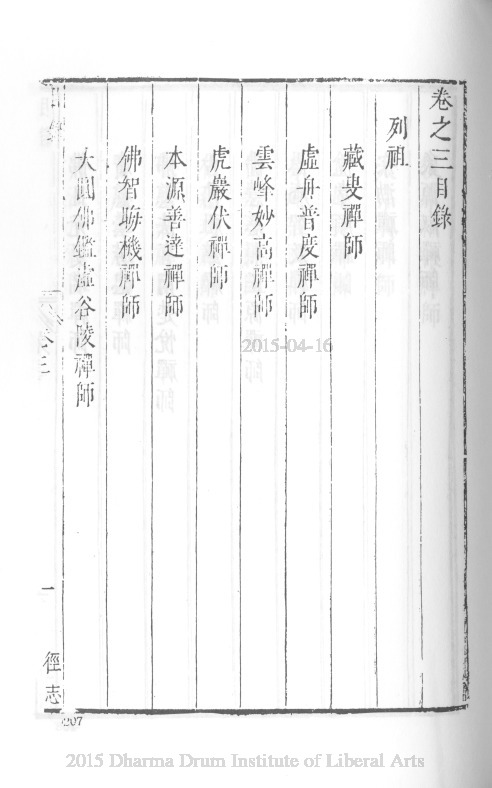 卷之三目錄
列祖
藏叟禪師
虛舟普度禪師
雲峰妙高禪師
虎巖伏禪師
本源善達禪師
佛智晦機禪師
大圓佛鑑虛谷陵禪師
卷三
一
徑志
207
2015-04-16
2015 Dharma Drum Institute of Liberal Arts